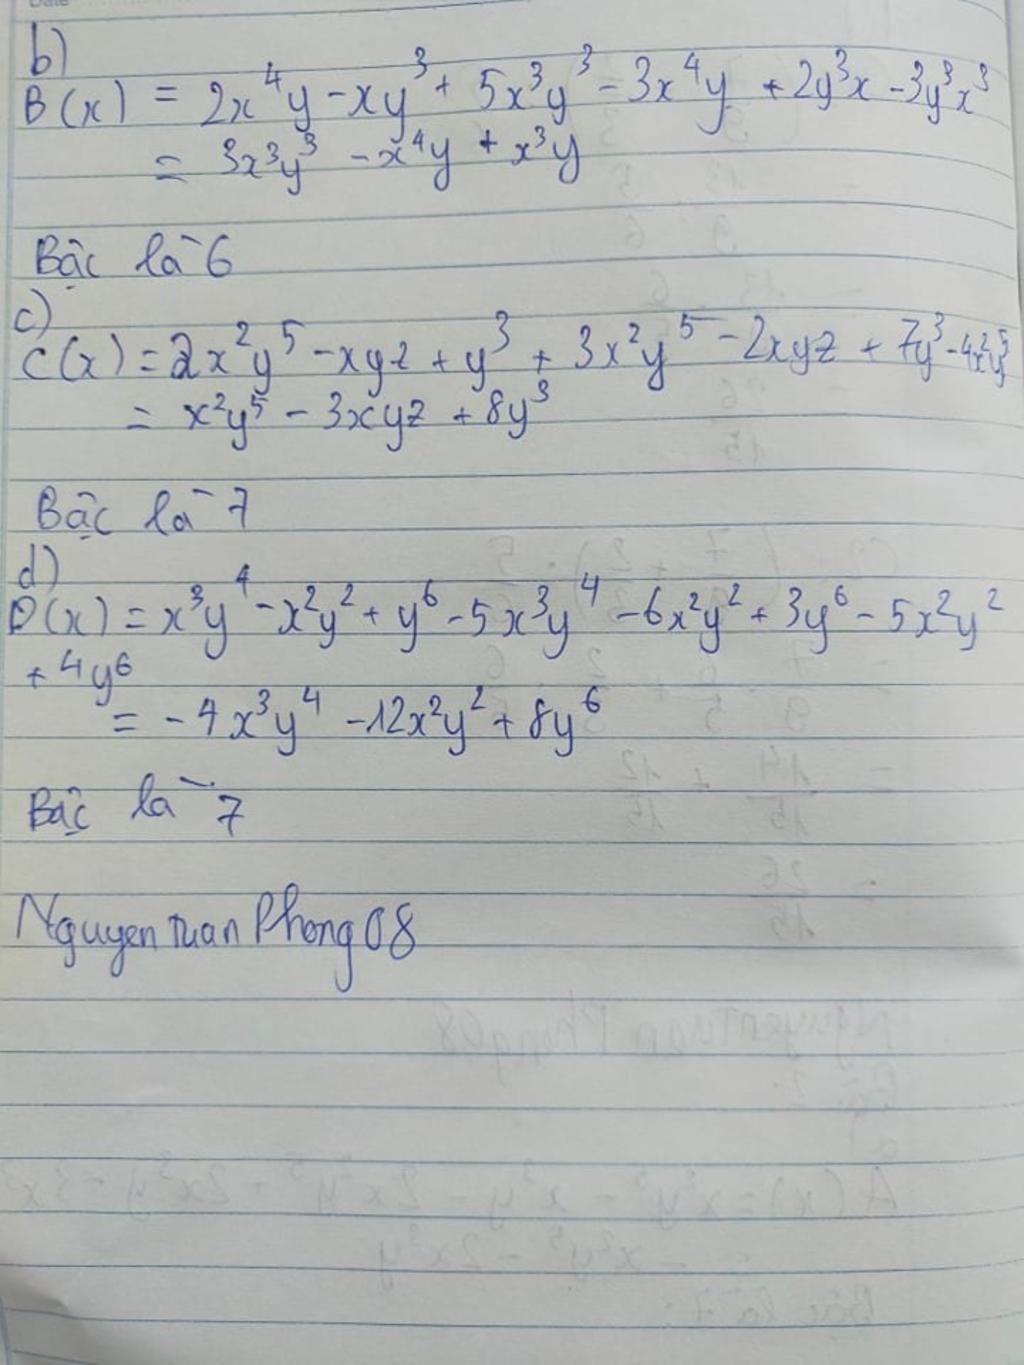 b)
B(x) = 2x⁴y - xy³ + 5x³y³ - 3x⁴y + 2y³x - 3y³x³
= 3x³y³ - x⁴y + x³y
Bậc là 6
c)
C(x) = 2x²y⁵ - xyz + y³ + 3x²y⁵ - 2xyz + 7y³ - 4x²y⁵
= x²y⁵ - 3xyz + 8y³
Bậc là 7
d)
D(x) = x³y⁴ - x²y² + y⁶ - 5x³y⁴ - 6x²y² + 3y⁶ - 5x²y²
+ 4y⁶
= -4x³y⁴ - 12x²y² + 8y⁶
Bậc là 7
Nguyen Tuan Phong 08